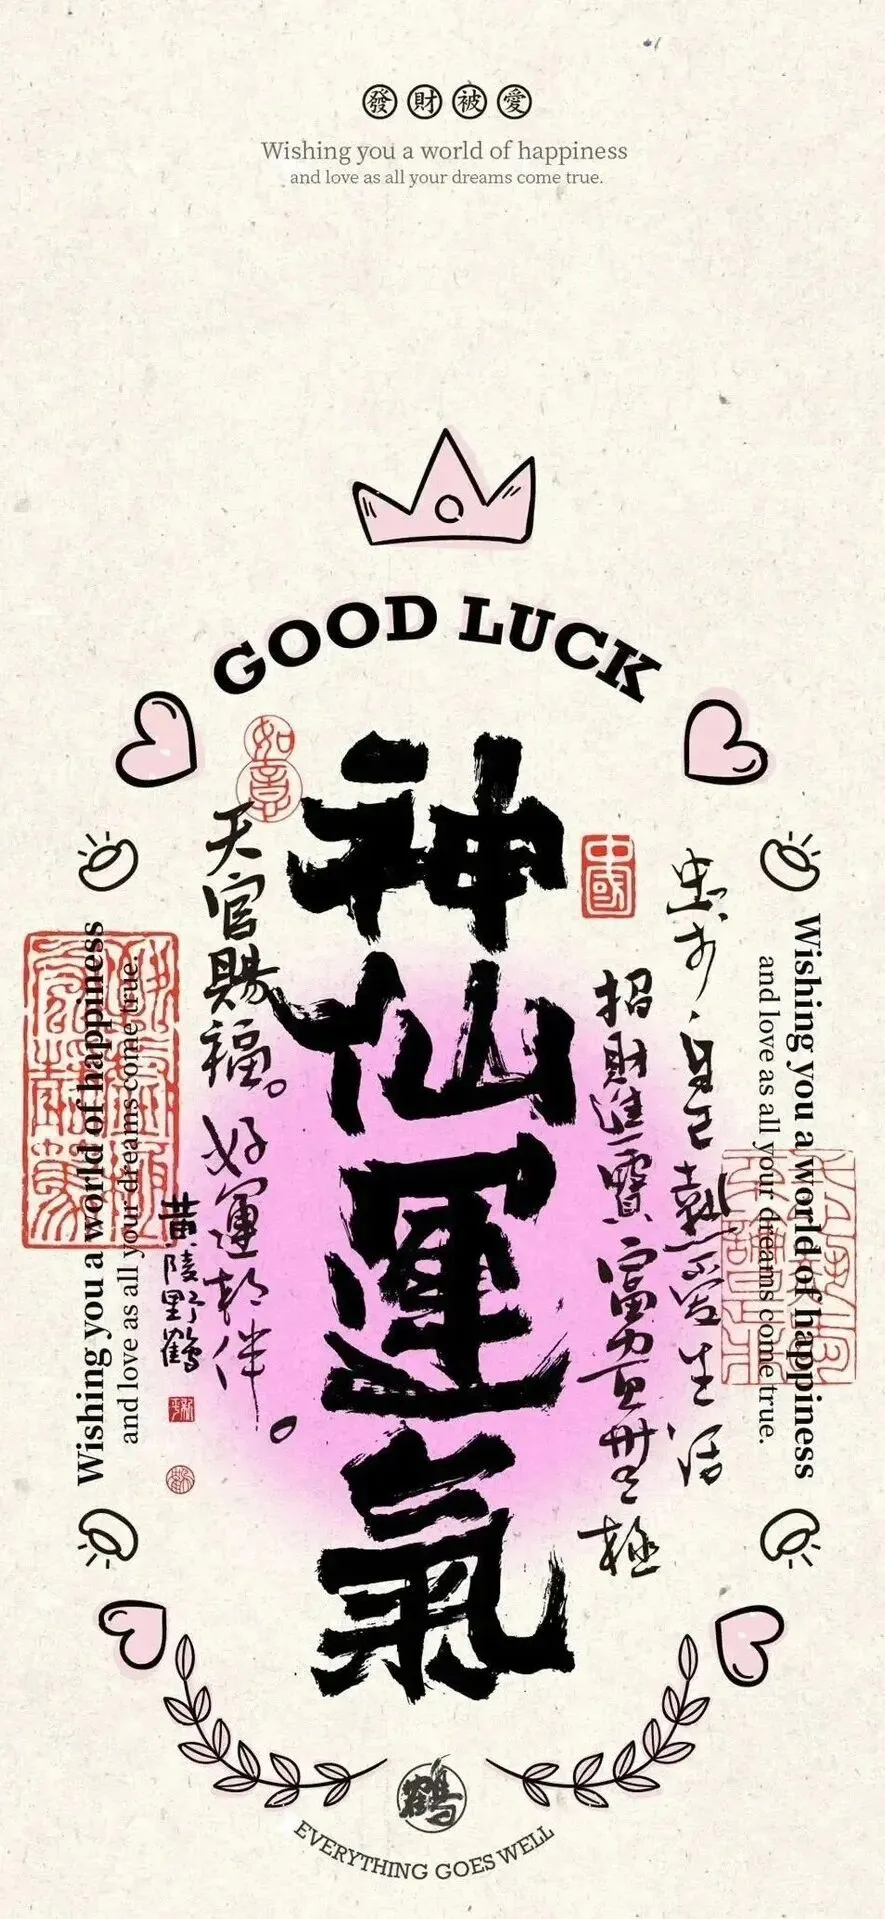 發財被愛
Wishing you a world of happiness
and love as all your dreams come true.
GOOD LUCK
如意
神仙運氣
中國
忠於自己熱愛生活
招財進寶富貴無極
天官賜福。好運相伴。
黄陵野鶴
Wishing you a world of happiness
and love as all your dreams come true.
Wishing you a world of happiness
and love as all your dreams come true.
鶴
EVERYTHING GOES WELL